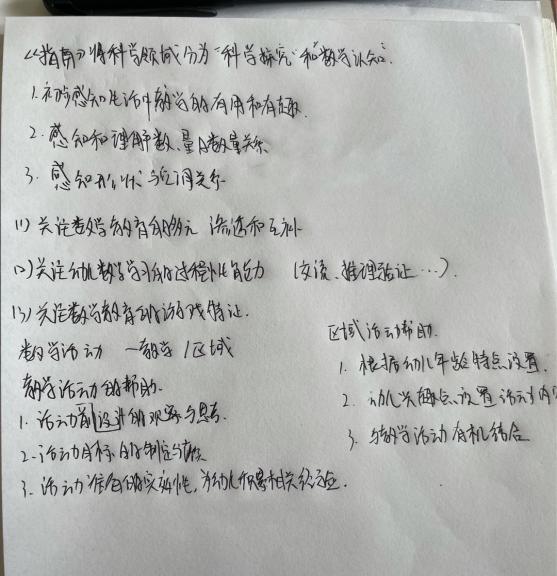 《指南》将科学领域分为“科学探究”和“数学认知”.
1. 初步感知生活中数学的有用和有趣.
2. 感知和理解数、量及数量关系
3. 感知形状与空间关系
(1) 关注数学教育的多元 渗透和互补
(2) 关注幼儿数学学习的过程性能力 (交流、推理验证…).
(3) 关注数学教育的游戏特征.
数学活动 — 教学 / 区域
教学活动的帮助.
1. 活动前设计的观察与思考.
2. 活动目标的制定与
3. 活动准备的实效性, 为幼儿积累相关经验.
区域活动帮助.
1. 根据幼儿年龄特点设置.
2. 幼儿兴趣点设置活动内
3. 与教学活动有机结合